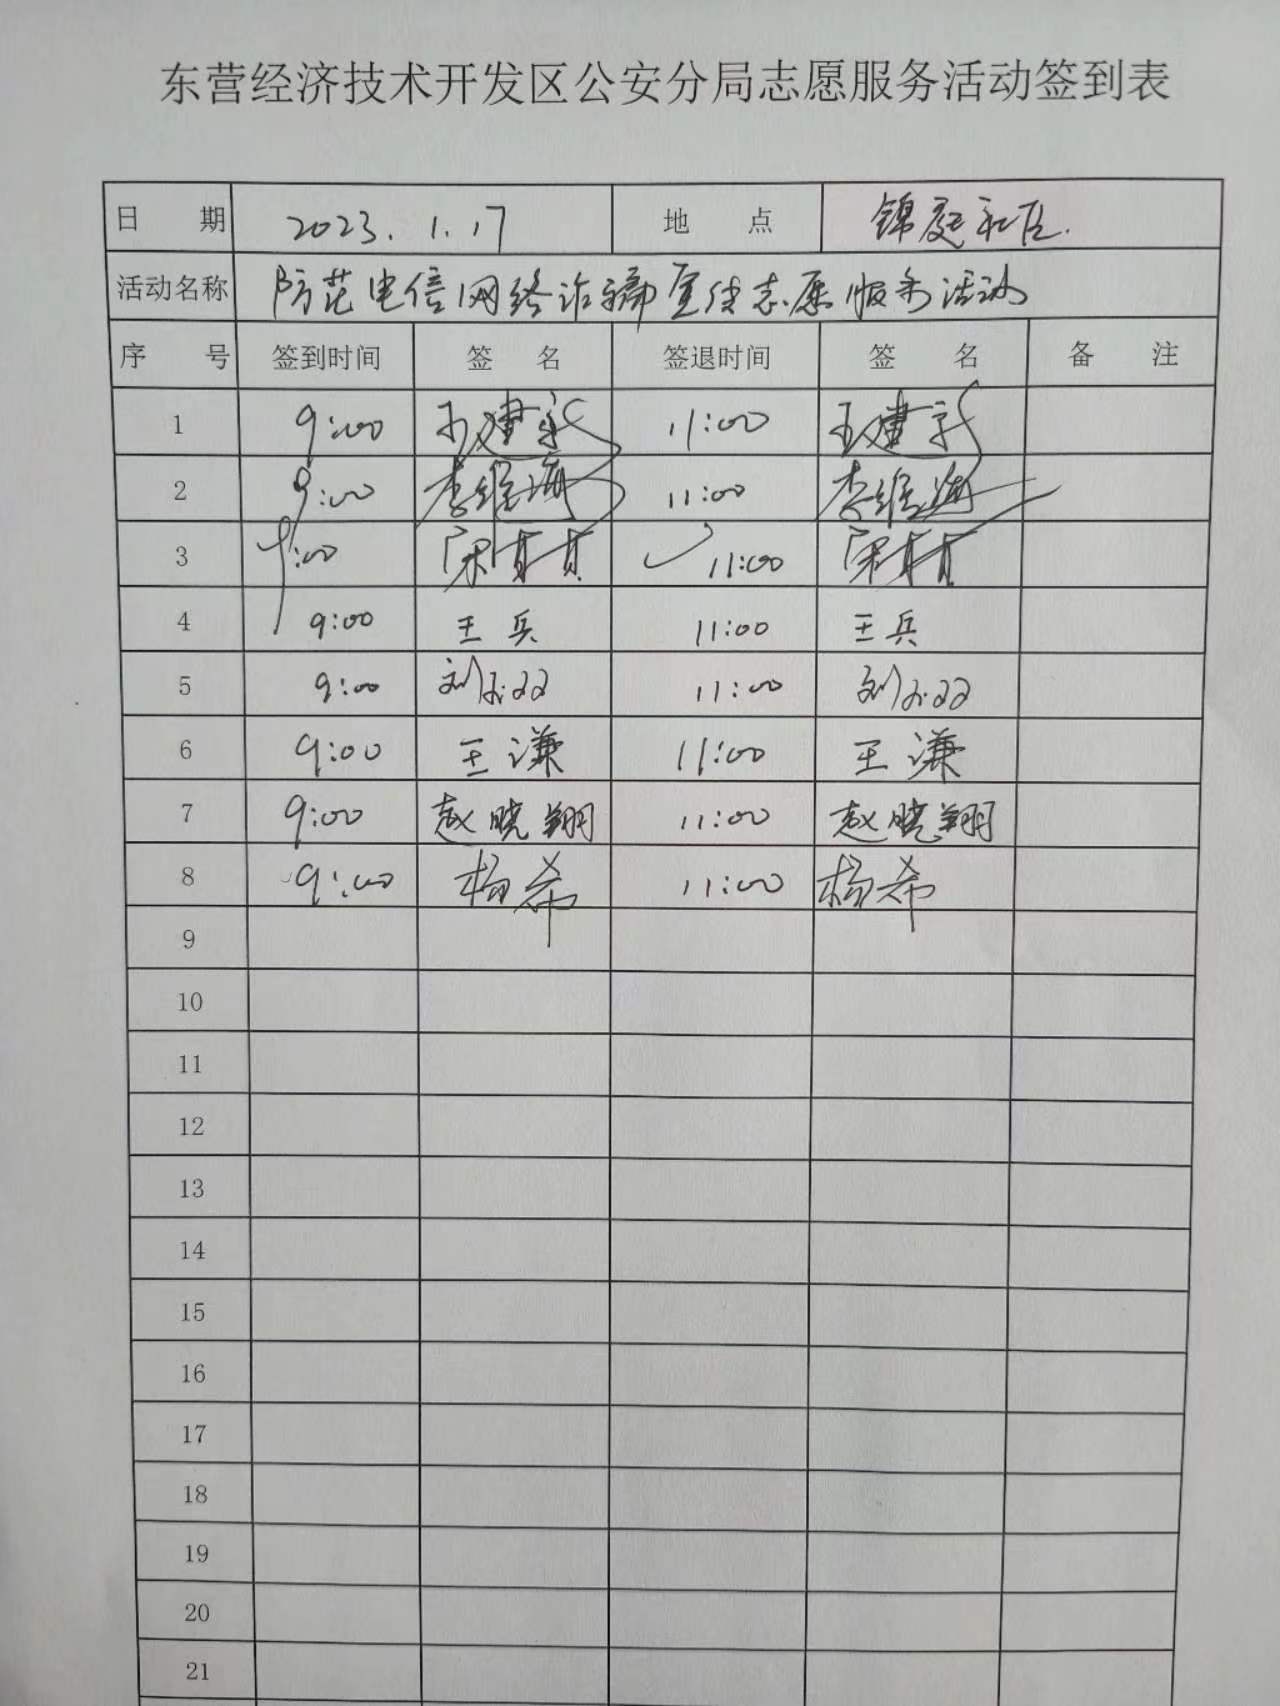 东营经济技术开发区公安分局志愿服务活动签到表
日 期 2023.1.17 地 点 锦庭社区.
活动名称 防范电信网络诈骗宣传志愿服务活动
序 号 签到时间 签 名 签退时间 签 名 备 注
1 9:00 王建新 11:00 王建新
2 9:00 李维海 11:00 李维海
3 9:00 11:00
4 9:00 王兵 11:00 王兵
5 9:00 刘 11:00 刘
6 9:00 王谦 11:00 王谦
7 9:00 赵晓翔 11:00 赵晓翔
8 9:00 杨希 11:00 杨希
9
10
11
12
13
14
15
16
17
18
19
20
21